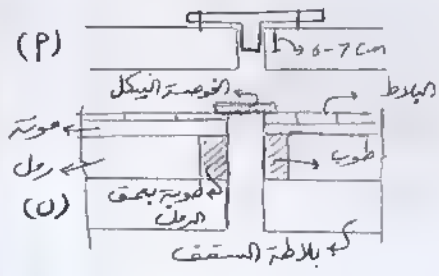 (P)
6-7 cm
الخوصة النيكل
البلاط
مونة
رمل
طوب
(ں)
طوبة بعمق
الرمل
بلاطة السقف